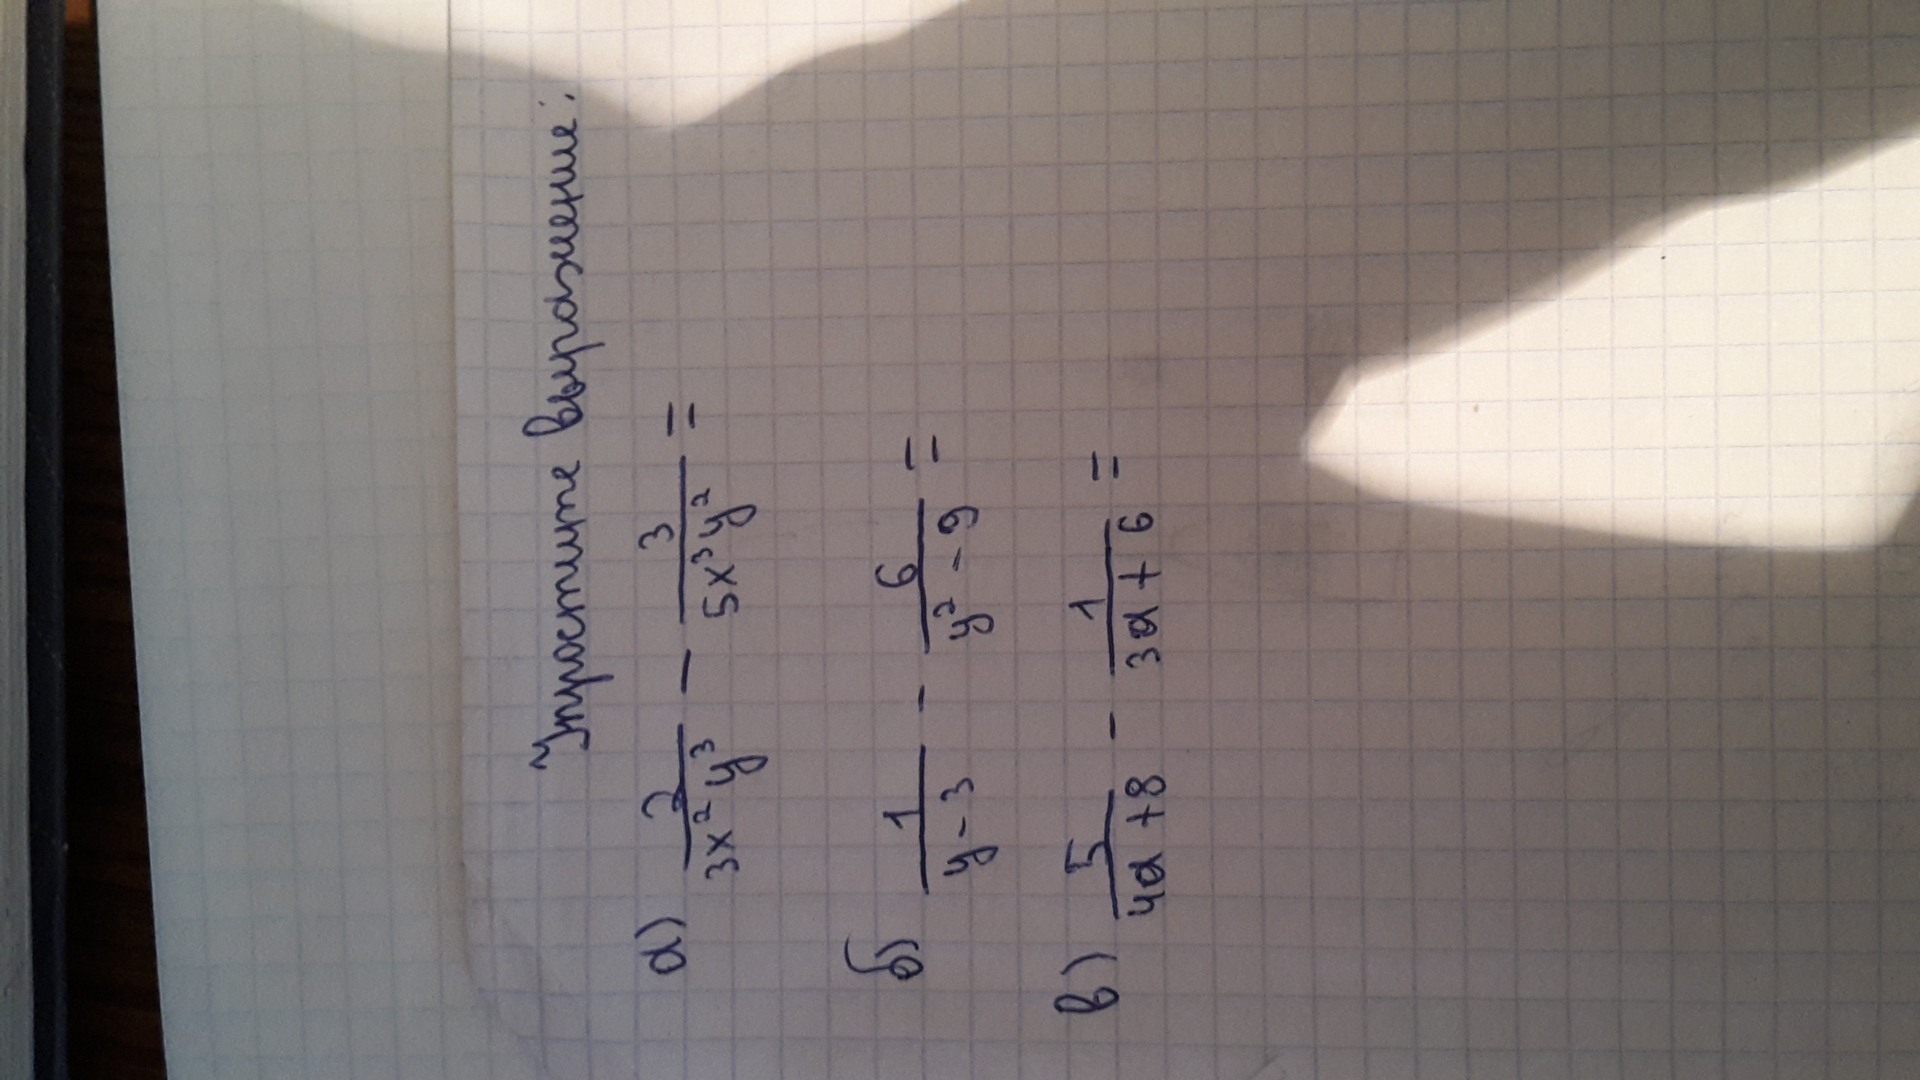 Упростите выражение:
а) 2/(3x²y³) - 3/(5x³y²) =
б) 1/(y-3) - 6/(y²-9) =
в) 5/(4a+8) - 1/(3a+6) =